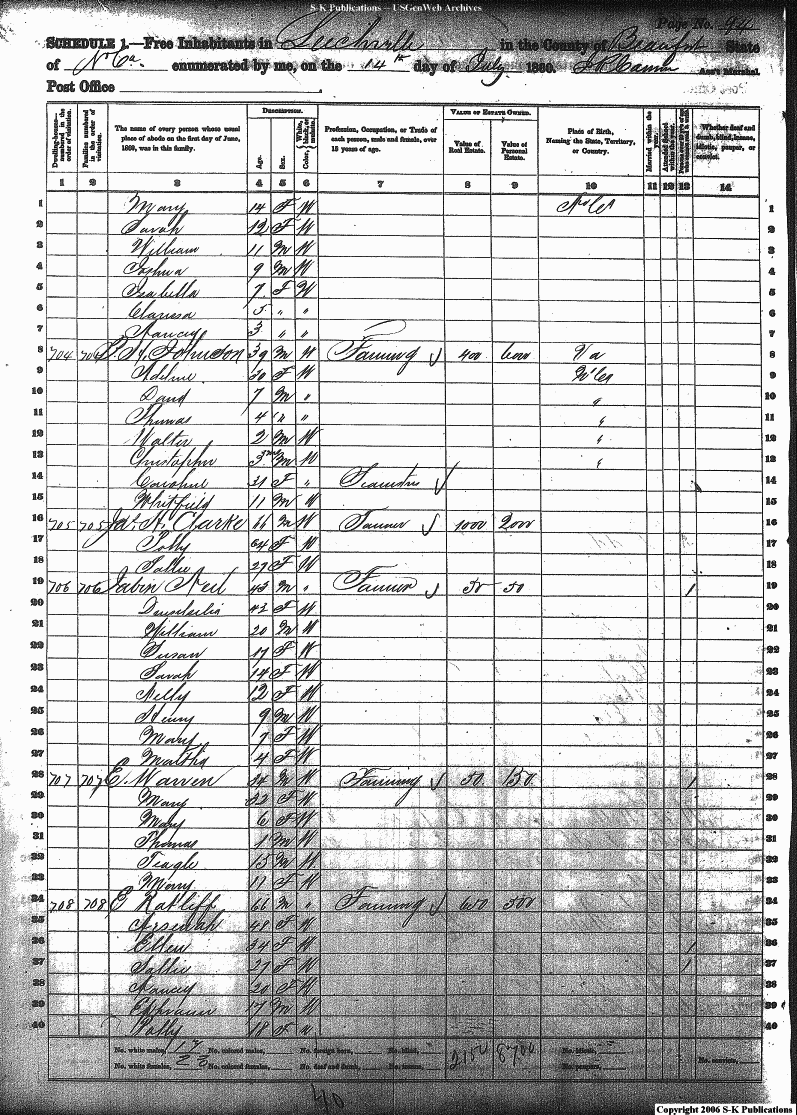 S-K Publications -- USGenWeb Archives
Page No. 94
SCHEDULE 1.—Free Inhabitants in in the County of Beaufort State
of N Ca. enumerated by me, on the 14th day of July 1860. Ass't Marshal.
Post Office
Dwelling-houses— numbered in the order of visitation.
Families numbered in the order of visitation.
The name of every person whose usual place of abode on the first day of June, 1860, was in this family.
DESCRIPTION.
Age.
Sex.
Color, White, black, or mulatto.
Profession, Occupation, or Trade of each person, male and female, over 15 years of age.
VALUE OF ESTATE OWNED.
Value of Real Estate.
Value of Personal Estate.
Place of Birth, Naming the State, Territory, or Country.
Married within the year.
Attended School within the year.
Whether deaf and dumb, blind, insane, idiotic, pauper, or convict.
1 2 3 4 5 6 7 8 9 10 11 12 13 14
1 Mary 14 F W 1
2 Sarah 12 F W 2
3 William 11 M W 3
4 Joshua 9 M W 4
5 Isabella 7 F W 5
6 Clarissa 5 " " 6
7 Nancy 3 " " 7
8 704 704 Johnson 39 M W Farming 400 600 Va 8
9 Adeline 30 F W 9
10 David 7 M " " 10
11 Thomas 4 " " " 11
12 Walter 2 M W " 12
13 Christopher 3 M W " 13
14 Caroline 31 F " 14
15 Whitfield 11 M W 15
16 705 705 Clarke 66 M W Farmer 1000 2000 16
17 Polly 64 F W 17
18 Sallie 27 F W 18
19 706 706 Jabin Neil 45 M " Farmer 50 50 1 19
20 42 F W 20
21 William 20 M W 21
22 Susan 17 F W 22
23 Sarah 14 F W 23
24 Nelly 12 F W 24
25 Henry 9 M W 25
26 Mary 7 F W 26
27 Martha 4 F W 27
28 707 707 E. Warren 34 M W Farming 50 150 1 28
29 Mary 32 F W 29
30 Mary 6 F W 30
31 Thomas 1 M W 31
32 Teagle 15 M W 32
33 Mary 11 F W 33
34 708 708 E Ratliff 66 M " Farming 650 500 34
35 48 F W 35
36 Ellen 34 F W 1 36
37 Sallie 27 F W 1 37
38 Nancy 20 F W 38
39 Ephraim 17 M W 39
40 Polly 18 F 40
No. white males, 17 No. colored males, No. foreign born, No. blind, 2150 8700 No. idiotic,
No. white females, 23 No. colored females, No. deaf and dumb, No. insane, No. paupers, No. convicts,
40
Copyright 2006 S-K Publications